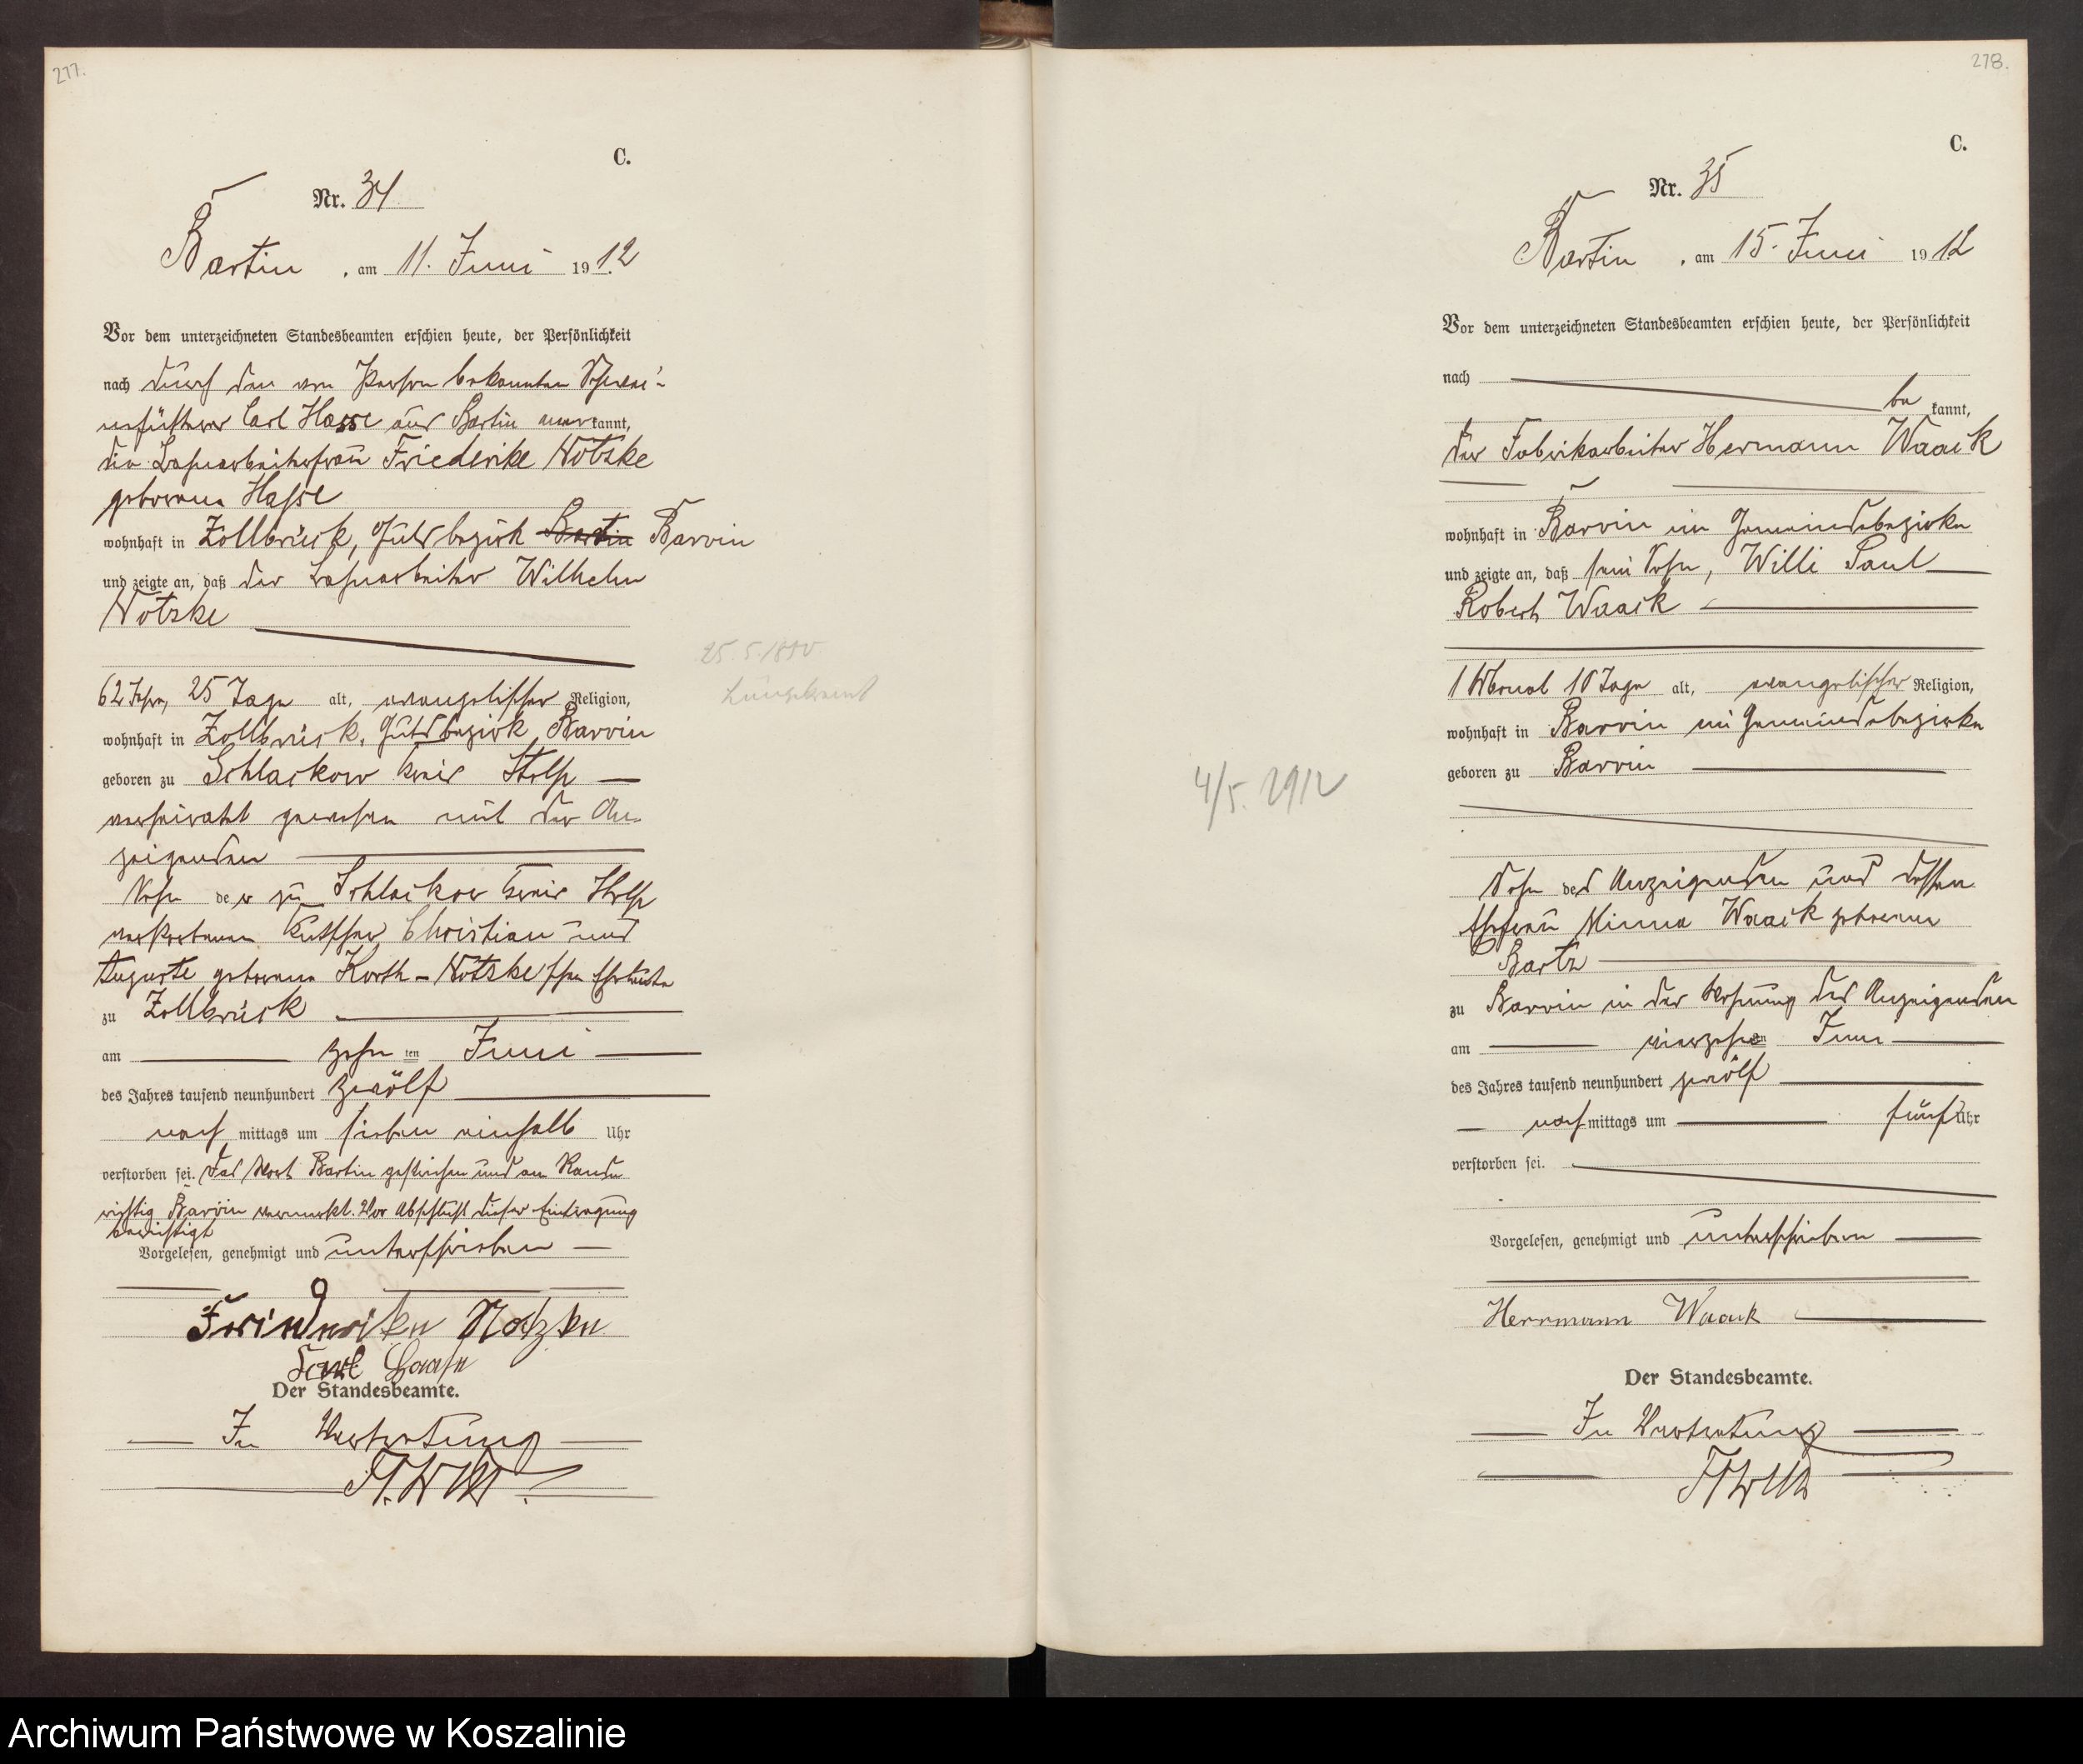 277.
C.
Nr. 34
Bartin, am 11. Juni 1912
Vor dem unterzeichneten Standesbeamten erschien heute, der Persönlichkeit
nach durch den von Person bekannten
Carl Hasse aus Bartin anerkannt,
die Bahnarbeiterfrau Friederike Nötzke
geborene Hasse
wohnhaft in Zollbrück, Gutsbezirk Bartin Barvin
und zeigte an, daß der Bahnarbeiter Wilhelm
Nötzke
62 Jahre, 25 Tage alt, evangelischer Religion,
wohnhaft in Zollbrück, Gutsbezirk Barvin
geboren zu Schlackow Kreis Stolp
verheiratet gewesen mit der An-
zeigenden
Sohn der zu Schlackow Kreis Stolp
verstorbenen Kutscher Christian und
Auguste geborene Korth-Nötzke'schen Eheleute
zu Zollbrück
am zehn ten Juni
des Jahres tausend neunhundert zwölf
nach mittags um sieben einhalb Uhr
verstorben sei. Das Wort Bartin gestrichen und am Rande
richtig Barvin vermerkt. Vor Abschluß dieser Eintragung
berichtigt
Vorgelesen, genehmigt und unterschrieben
Friederike Nötzke
Carl Haase
Der Standesbeamte.
In Vertretung
25.5.1850
278.
C.
Nr. 35
Bartin, am 15. Juni 1912
Vor dem unterzeichneten Standesbeamten erschien heute, der Persönlichkeit
nach
be kannt,
der Fabrikarbeiter Hermann Waack
wohnhaft in Barvin im Gemeindebezirke
und zeigte an, daß sein Sohn, Willi Paul
Robert Waack
1 Monat 10 Tage alt, evangelischer Religion,
wohnhaft in Barvin im Gemeindebezirke
geboren zu Barvin
Sohn des Anzeigenden und dessen
Ehefrau Minna Waack geborene
Bartz
zu Barvin in der Wohnung des Anzeigenden
am vierzehnten Juni
des Jahres tausend neunhundert zwölf
nach mittags um fünf Uhr
verstorben sei.
Vorgelesen, genehmigt und unterschrieben
Herrmann Waack
Der Standesbeamte.
In Vertretung
4/5. 1912
Archiwum Państwowe w Koszalinie